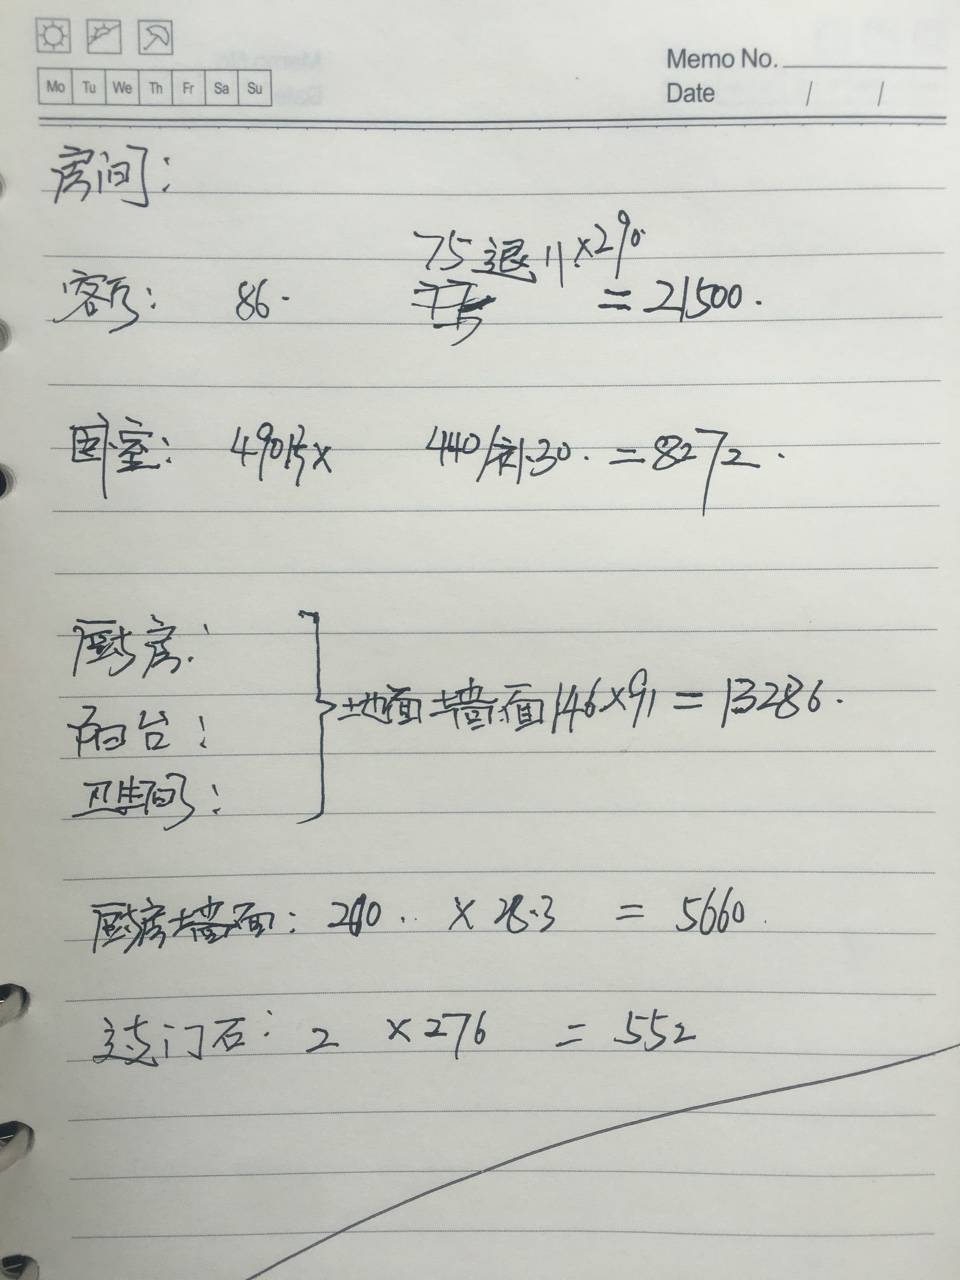 Memo No.
Mo Tu We Th Fr Sa Su
Date / /
房间:
75退11×290
客厅: 86. =21500.
卧室: 490片× 440/ 30. =8272.
厨房:
阳台:
卫生间:
地面墙面146×91=13286.
厨房墙面: 200 .. × 28.3 = 5660.
过门石: 2 ×276 = 552